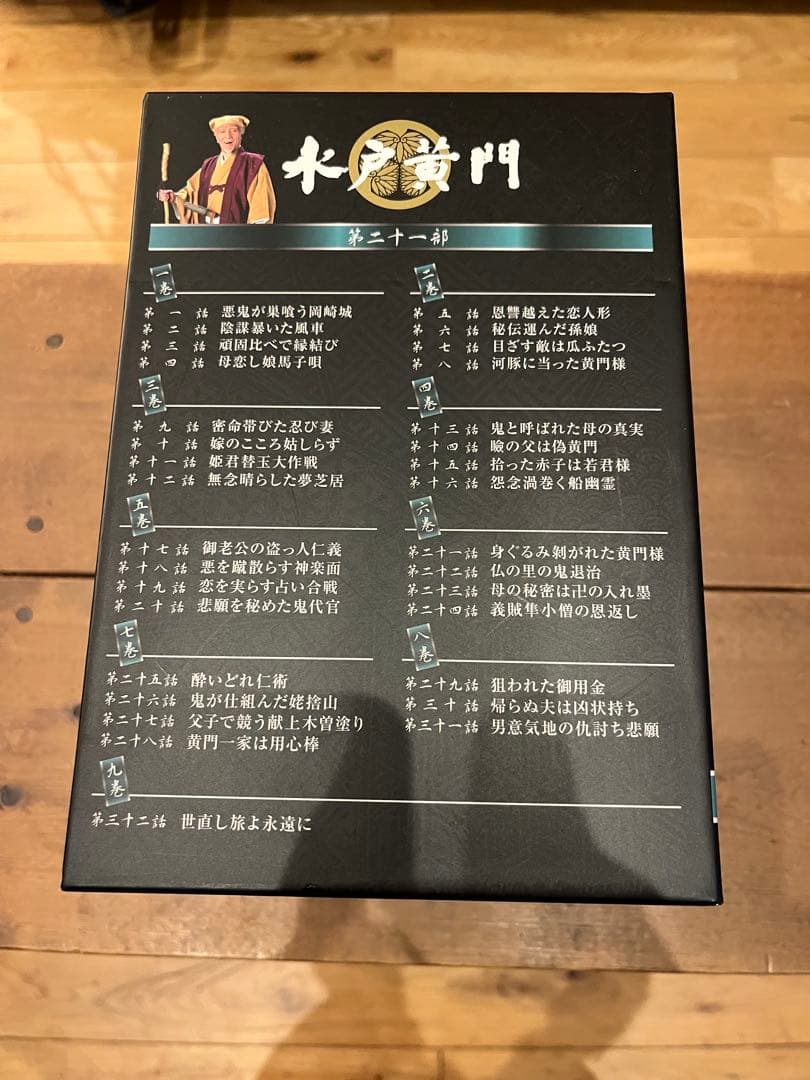 水戸黄門
第二十一部
一巻
第一話 悪鬼が巣喰う岡崎城
第二話 陰謀暴いた風車
第三話 頑固比べで縁結び
第四話 母恋し娘馬子唄
二巻
第五話 恩讐越えた恋人形
第六話 秘伝運んだ孫娘
第七話 目ざす敵は瓜ふたつ
第八話 河豚に当った黄門様
三巻
第九話 密命帯びた忍び妻
第十話 嫁のこころ姑しらず
第十一話 姫君替玉大作戦
第十二話 無念晴らした夢芝居
四巻
第十三話 鬼と呼ばれた母の真実
第十四話 瞼の父は偽黄門
第十五話 拾った赤子は若君様
第十六話 怨念渦巻く船幽霊
五巻
第十七話 御老公の盗っ人仁義
第十八話 悪を蹴散らす神楽面
第十九話 恋を実らす占い合戦
第二十話 悲願を秘めた鬼代官
六巻
第二十一話 身ぐるみ剝がれた黄門様
第二十二話 仏の里の鬼退治
第二十三話 母の秘密は卍の入れ墨
第二十四話 義賊隼小僧の恩返し
七巻
第二十五話 酔いどれ仁術
第二十六話 鬼が仕組んだ姥捨山
第二十七話 父子で競う献上木曽塗り
第二十八話 黄門一家は用心棒
八巻
第二十九話 狙われた御用金
第三十話 帰らぬ夫は凶状持ち
第三十一話 男意気地の仇討ち悲願
九巻
第三十二話 世直し旅よ永遠に